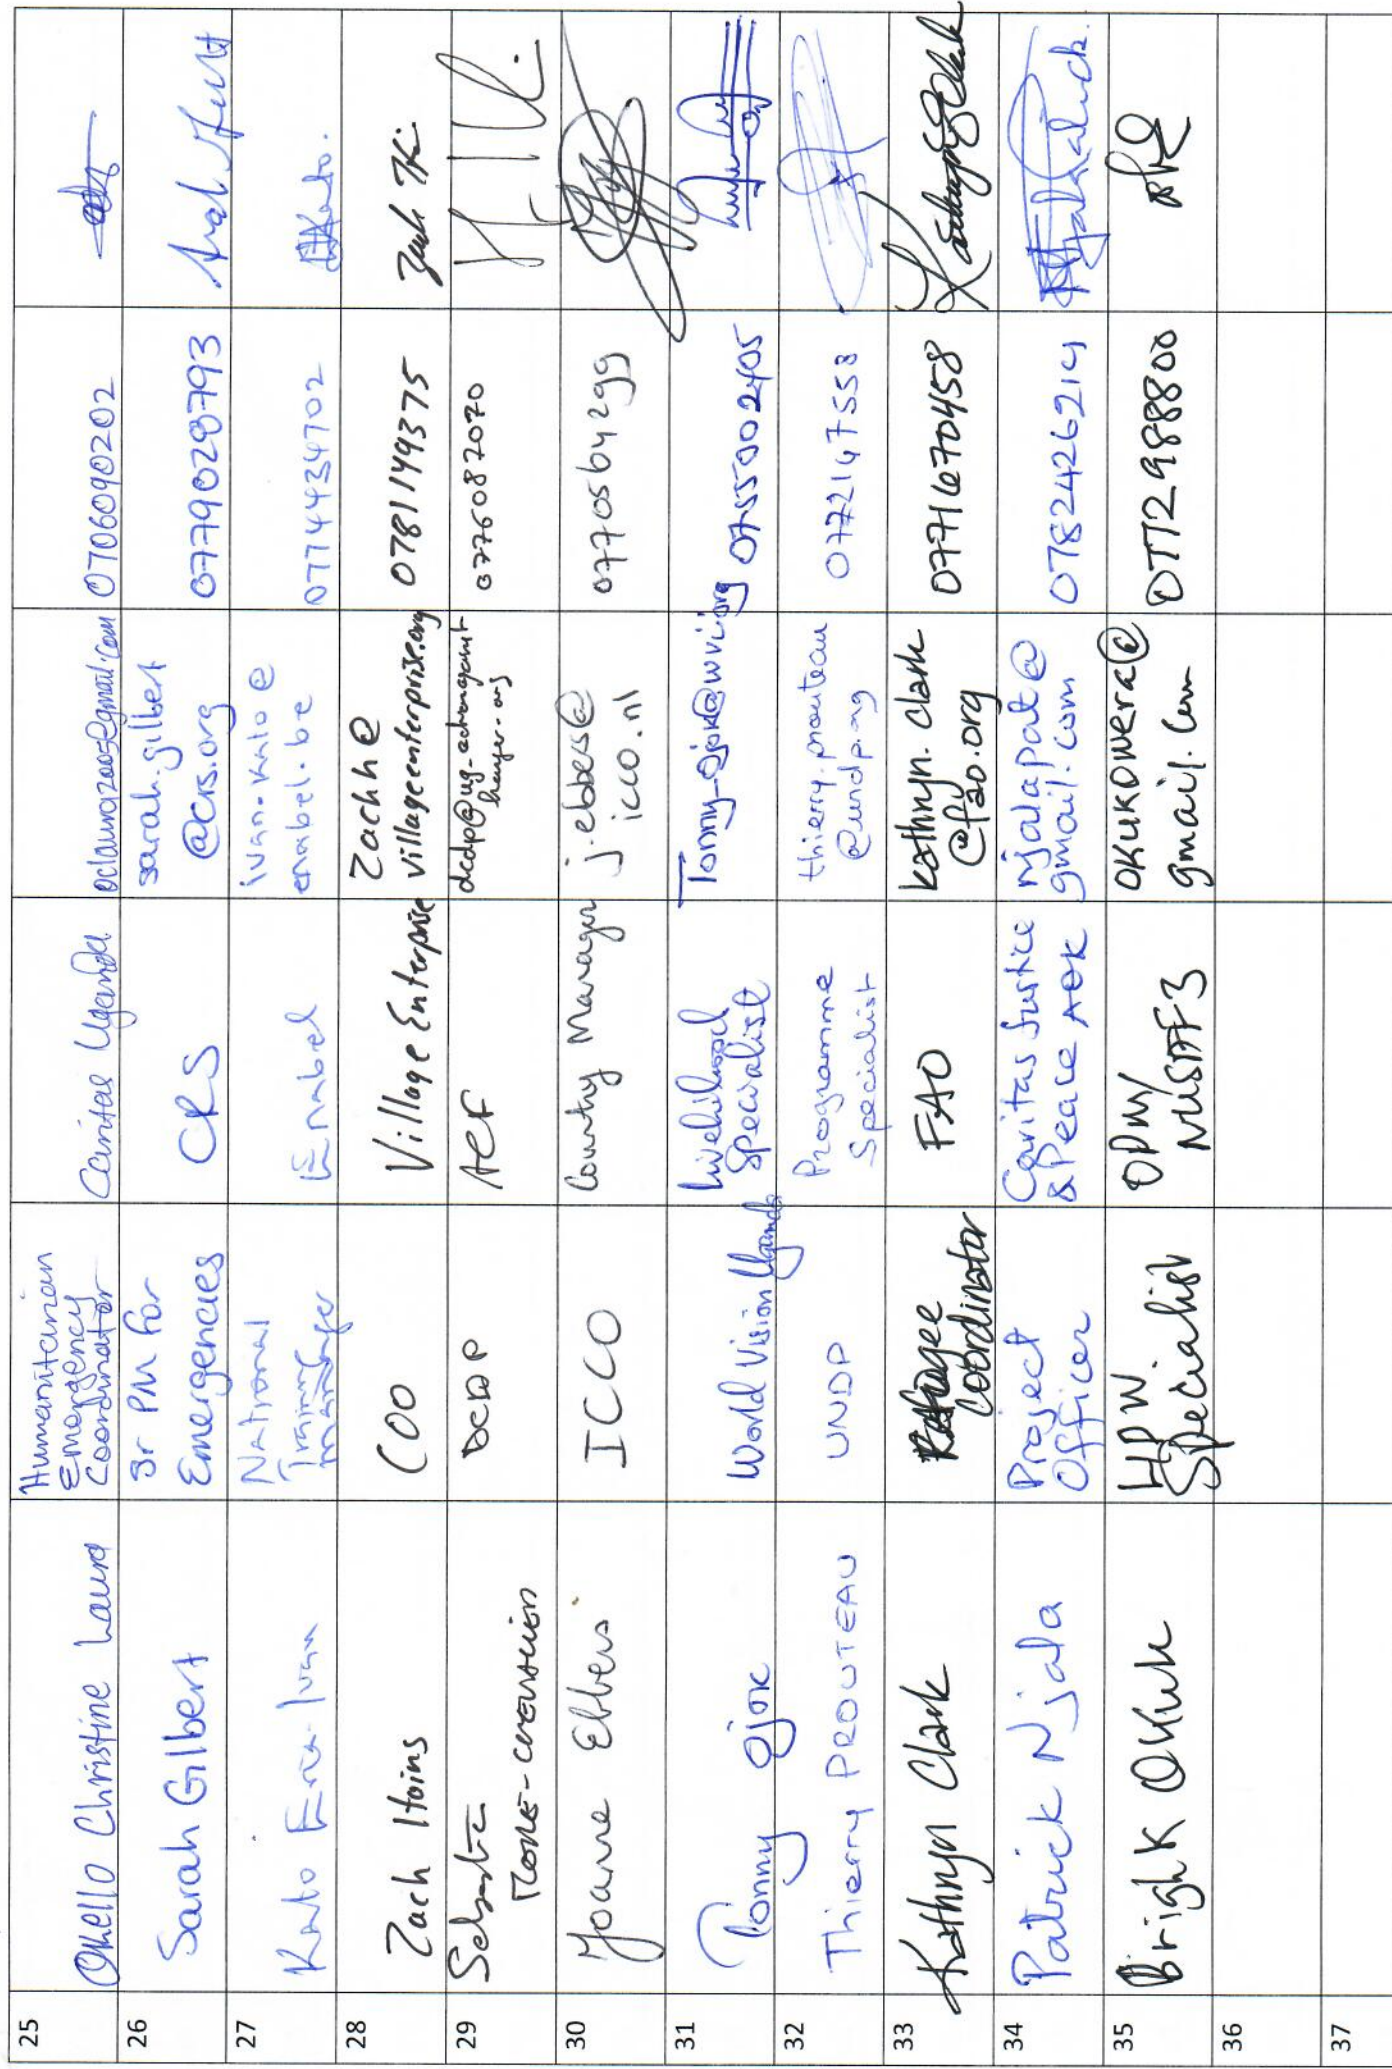 25
Okello Christine Laura
Humanitarian
Emergency
Coordinator
Caritas Uganda
oclaura2005@gmail.com
0706090202
26
Sarah Gilbert
Sr PM for
Emergencies
CRS
sarah.gilbert
@crs.org
0779028793
27
Kato Eria Ivan
National
Training
Manager
Enabel
ivan.kato@
enabel.be
0774434702
28
Zach Hoins
COO
Village Enterprise
Zachh@
villageenterprise.org
0781149375
29
DCDP
ACF
dcdp@ug-actionagainst
hunger.org
0776087070
30
Joanne Ebbers
ICCO
Country Manager
j.ebbers@
icco.nl
0770564299
31
Tonny Ojok
World Vision Uganda
Livelihood
Specialist
Tonny_Ojok@wvi.org
0755002405
32
Thierry PROUTEAU
UNDP
Programme
Specialist
thierry.prouteau
@undp.org
0772147558
33
Kathryn Clark
Refugee
Coordinator
FAO
kathryn.clark
@fao.org
0771670458
34
Patrick Njala
Project
Officer
Caritas Justice
& Peace AOK
njalapat@
gmail.com
0782426214
35
Brigh K Okuk
HPW
Specialist
OPM/
NUSAF3
okukowera@
gmail.com
0772988800
36
37